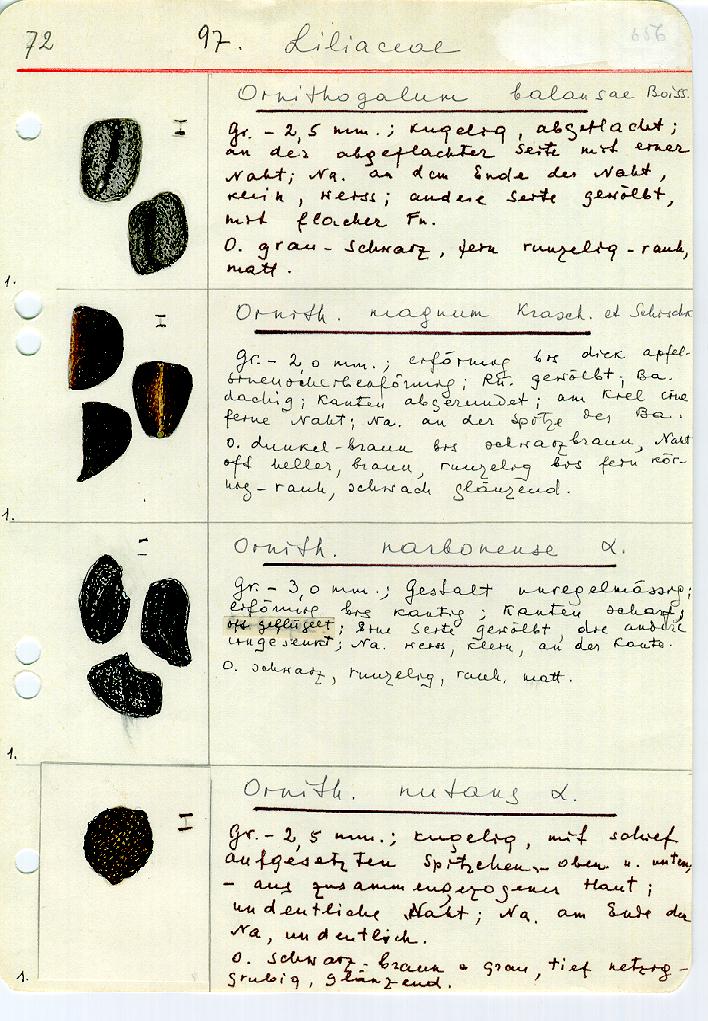 72 97. Liliaceae 656
Ornithogalum balansae Boiss.
Gr. - 2,5 mm.; kugelig, abgeflacht;
an der abgeflachter Seite mit einer
Naht; Na. an dem Ende der Naht,
klein, weiss; andere Seite gewölbt,
mit flacher Fu.
O. grau-schwarz, fein runzelig-rauh,
matt.
1.
Ornith. magnum Krasch. et Schischk
Gr. - 2,0 mm.; eiförmig bis dick apfel-
Rü. gewölbt; Ba.
dachig; Kanten abgerundet; am Kiel eine
feine Naht; Na. an der Spitze des Ba..
O. dunkel-braun bis schwarzbraun, Naht
oft heller, braun, runzelig bis fein kör-
nig-rauh, schwach glänzend.
1.
Ornith. narbonense L.
Gr. - 3,0 mm.; Gestalt unregelmässig;
eiförmig bis kantig; Kanten scharf,
oft geflügelt; Eine Seite gewölbt, die andere
eingesenkt; Na. weiss, klein, an der Kante.
O. schwarz, runzelig, rauh, matt.
1.
Ornith. nutans L.
Gr. - 2,5 mm.; kugelig, mit schief
aufgesetzten Spitzchen - oben u. unten,
- aus zusammengezogener Haut;
undeutliche Naht; Na. am Ende der
Na, undeutlich.
O. schwarz-braun grau, tief netzig-
grubig, glänzend.
1.